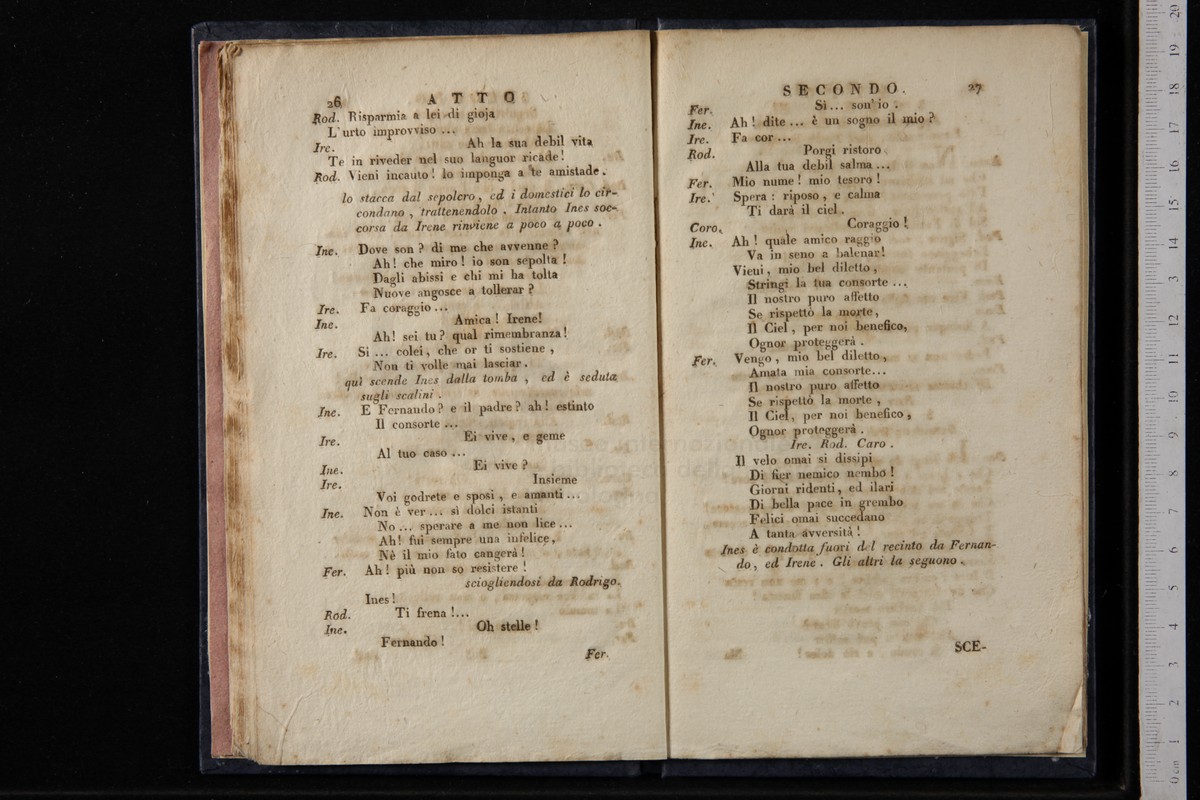 26 ATTO
Rod. Risparmia a lei di gioja
L'urto improvviso ...
Ire. Ah la sua debil vita
Te in riveder nel suo languor ricade!
Rod. Vieni incauto! lo imponga a te amistade.
lo stacca dal sepolcro, ed i domestici lo cir-
condano, trattenendolo. Intanto Ines soc-
corsa da Irene rinviene a poco a poco.
Ine. Dove son? di me che avvenne?
Ah! che miro! io son sepolta!
Dagli abissi e chi mi ha tolta
Nuove angosce a tollerar?
Ire. Fa coraggio ...
Ine. Amica! Irene!
Ah! sei tu? qual rimembranza!
Ire. Sì ... colei, che or ti sostiene,
Non ti volle mai lasciar.
quì scende Ines dalla tomba, ed è seduta
sugli scalini.
Ine. E Fernando? e il padre? ah! estinto
Il consorte ...
Ire. Ei vive, e geme
Al tuo caso ...
Ine. Ei vive?
Ire. Insieme
Voi godrete e sposi, e amanti ...
Ine. Non è ver ... sì dolci istanti
No ... sperare a me non lice ...
Ah! fui sempre una infelice,
Nè il mio fato cangerà!
Fer. Ah! più non so resistere!
sciogliendosi da Rodrigo.
Ines!
Rod. Ti frena!...
Ine. Oh stelle!
Fernando!
Fer.
SECONDO. 27
Fer. Sì ... son' io.
Ine. Ah! dite ... è un sogno il mio?
Ire. Fa cor ...
Rod. Porgi ristoro
Alla tua debil salma ...
Fer. Mio nume! mio tesoro!
Ire. Spera: riposo, e calma
Ti darà il ciel.
Coro. Coraggio!
Ine. Ah! quale amico raggio
Va in seno a balenar!
Vieni, mio bel diletto,
Stringi la tua consorte ...
Il nostro puro affetto
Se rispettò la morte,
Il Ciel, per noi benefico,
Ognor proteggerà.
Fer. Vengo, mio bel diletto,
Amata mia consorte...
Il nostro puro affetto
Se rispettò la morte,
Il Ciel, per noi benefico,
Ognor proteggerà.
Ire. Rod. Caro.
Il velo omai si dissipi
Di fier nemico nembo!
Giorni ridenti, ed ilari
Di bella pace in grembo
Felici omai succedano
A tanta avversità!
Ines è condotta fuori del recinto da Fernan-
do, ed Irene. Gli altri la seguono.
SCE-